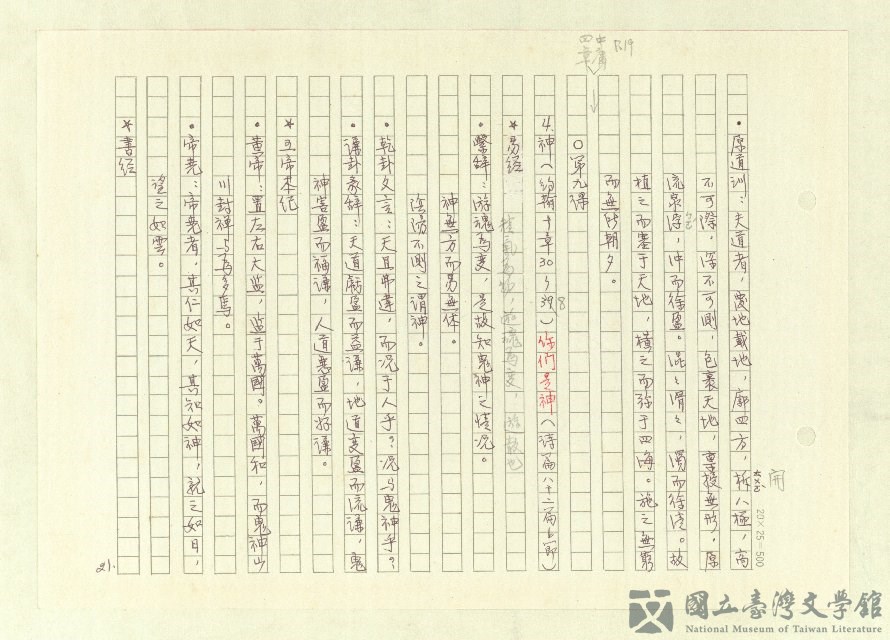 中庸 P.19
四章
•原道訓:夫道者,覆地載地,廓四方,柝八極,高
不可際,深不可測,包裹天地,稟授無形,原
流泉浡,沖而徐盈。混々滑々,濁而徐清。故
植之而塞于天地,橫之而弥于四海。施之無窮
而無所朝夕。
○第九課
4.神(約翰十章30~39,8)你們是神(詩篇八十二篇六節)
★易經:精氣為物,遊魂為變,
•繫辭:游魂為變,是故知鬼神之情況。
神無方而易無体。
陰陽不測之謂神。
•乾卦文言:天且弗違,而況于人乎?況与鬼神乎?
•謙卦彖辭:天道虧盈而益謙,地道变盈而流謙,鬼
神害盈而福謙,人道惡盈而好謙。
★五帝本纪
•黄帝:置左右大监,监于萬國。萬國和,而鬼神山
川封禅与為多焉。
•帝尧:帝尧者,其仁如天,其知如神,就之如日,
望之如雲。
★書经
21.
開
20×25=500
國立臺灣文學館
National Museum of Taiwan Literature